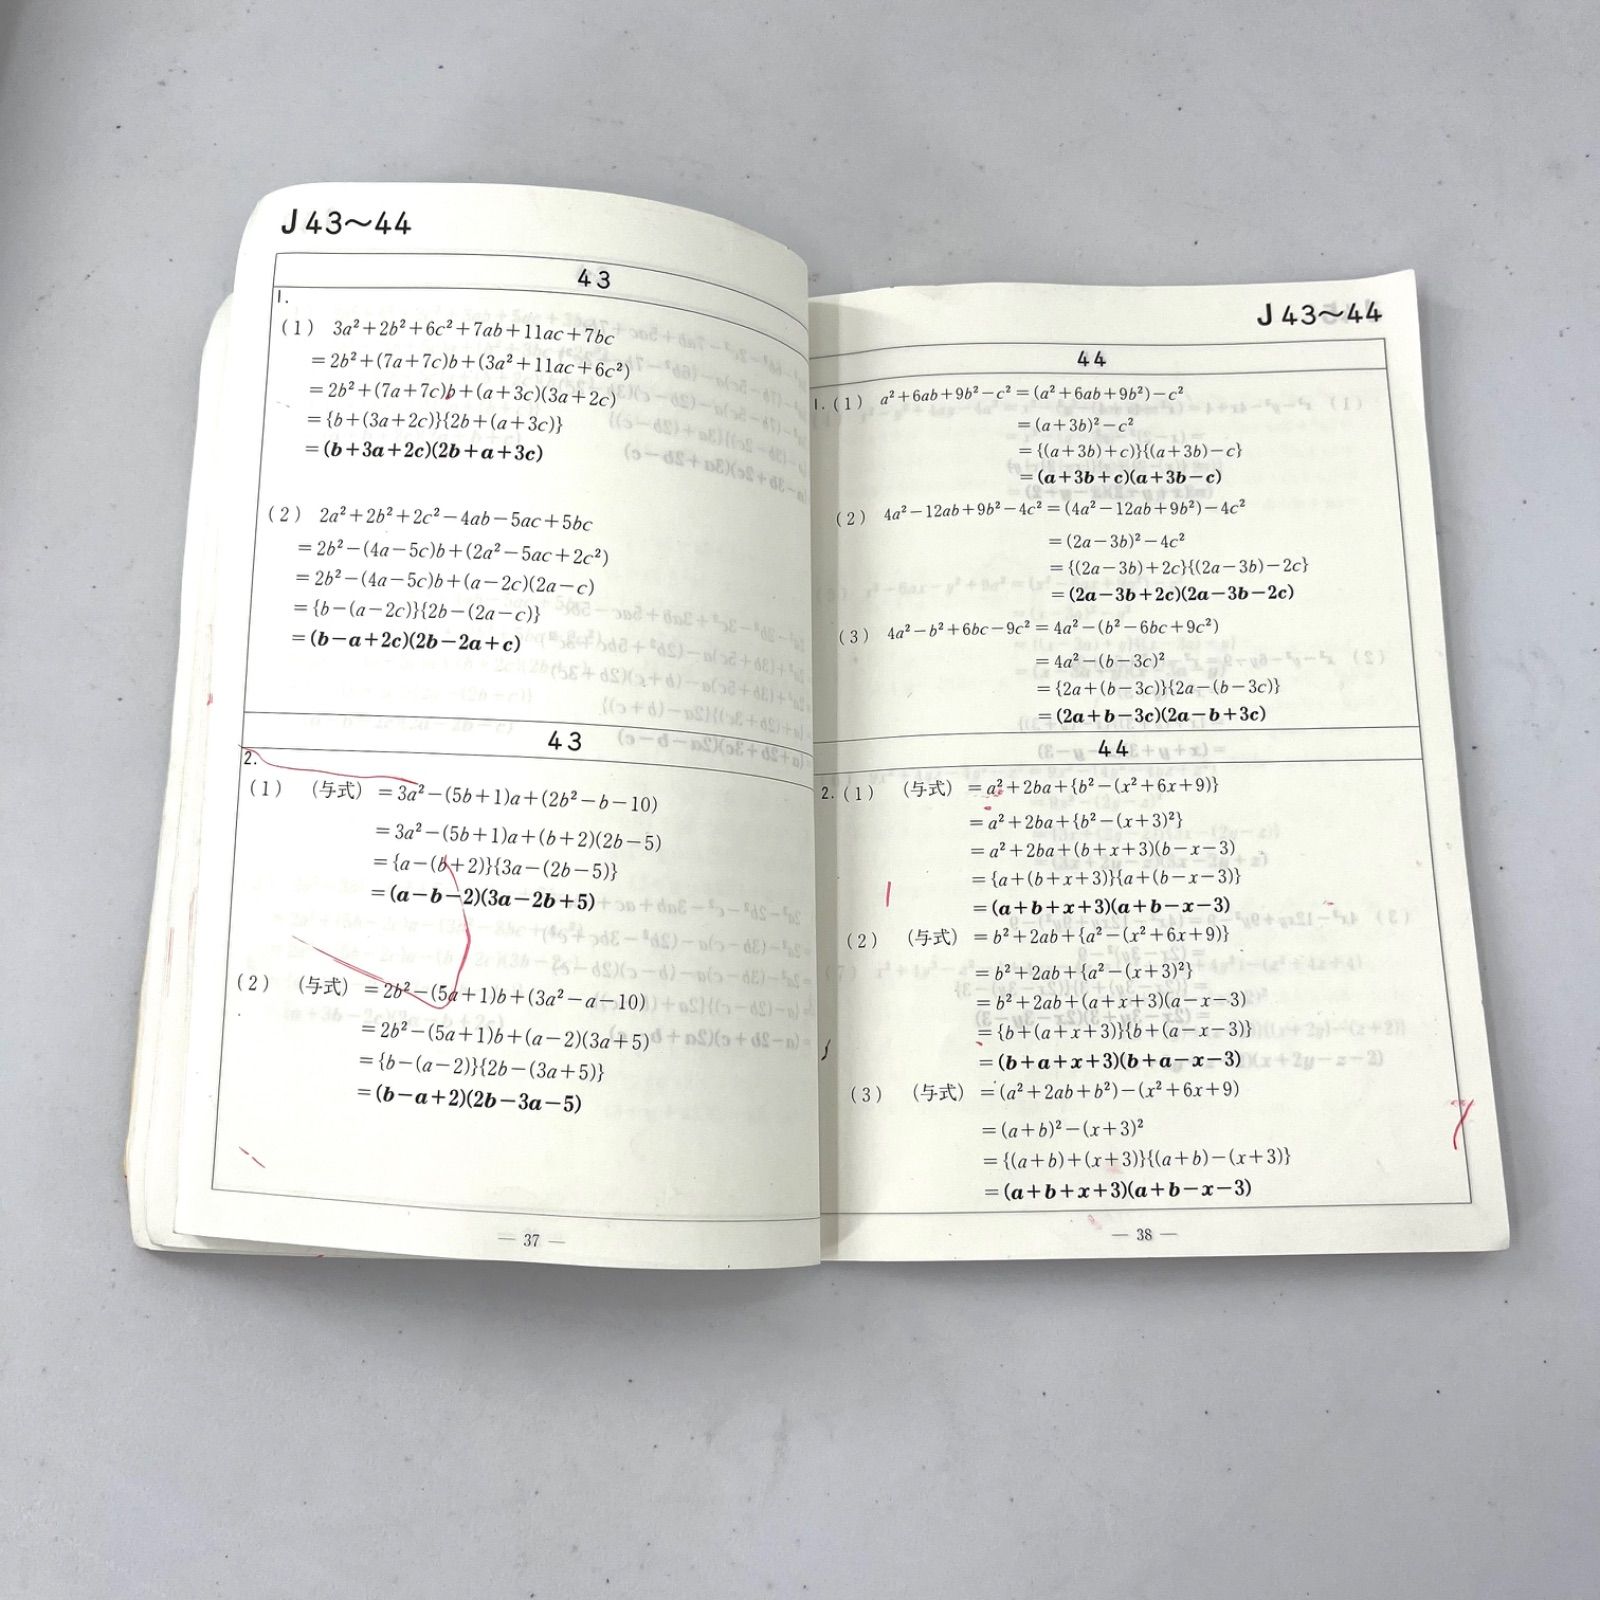 J 43〜44
43
1.
(1) 3a²+2b²+6c²+7ab+11ac+7bc
=2b²+(7a+7c)b+(3a²+11ac+6c²)
=2b²+(7a+7c)b+(a+3c)(3a+2c)
={b+(3a+2c)}{2b+(a+3c)}
=(b+3a+2c)(2b+a+3c)
(2) 2a²+2b²+2c²−4ab−5ac+5bc
=2b²−(4a−5c)b+(2a²−5ac+2c²)
=2b²−(4a−5c)b+(a−2c)(2a−c)
={b−(a−2c)}{2b−(2a−c)}
=(b−a+2c)(2b−2a+c)
43
2.
(1) (与式) =3a²−(5b+1)a+(2b²−b−10)
=3a²−(5b+1)a+(b+2)(2b−5)
={a−(b+2)}{3a−(2b−5)}
=(a−b−2)(3a−2b+5)
(2) (与式) =2b²−(5a+1)b+(3a²−a−10)
=2b²−(5a+1)b+(a−2)(3a+5)
={b−(a−2)}{2b−(3a+5)}
=(b−a+2)(2b−3a−5)
— 37 —
J 43〜44
44
1. (1) a²+6ab+9b²−c²=(a²+6ab+9b²)−c²
=(a+3b)²−c²
={(a+3b)+c)}{(a+3b)−c}
=(a+3b+c)(a+3b−c)
(2) 4a²−12ab+9b²−4c²=(4a²−12ab+9b²)−4c²
=(2a−3b)²−4c²
={(2a−3b)+2c}{(2a−3b)−2c}
=(2a−3b+2c)(2a−3b−2c)
(3) 4a²−b²+6bc−9c²=4a²−(b²−6bc+9c²)
=4a²−(b−3c)²
={2a+(b−3c)}{2a−(b−3c)}
=(2a+b−3c)(2a−b+3c)
44
2. (1) (与式) =a²+2ba+{b²−(x²+6x+9)}
=a²+2ba+{b²−(x+3)²}
=a²+2ba+(b+x+3)(b−x−3)
={a+(b+x+3)}{a+(b−x−3)}
=(a+b+x+3)(a+b−x−3)
(2) (与式) =b²+2ab+{a²−(x²+6x+9)}
=b²+2ab+{a²−(x+3)²}
=b²+2ab+(a+x+3)(a−x−3)
={b+(a+x+3)}{b+(a−x−3)}
=(b+a+x+3)(b+a−x−3)
(3) (与式) =(a²+2ab+b²)−(x²+6x+9)
=(a+b)²−(x+3)²
={(a+b)+(x+3)}{(a+b)−(x+3)}
=(a+b+x+3)(a+b−x−3)
— 38 —